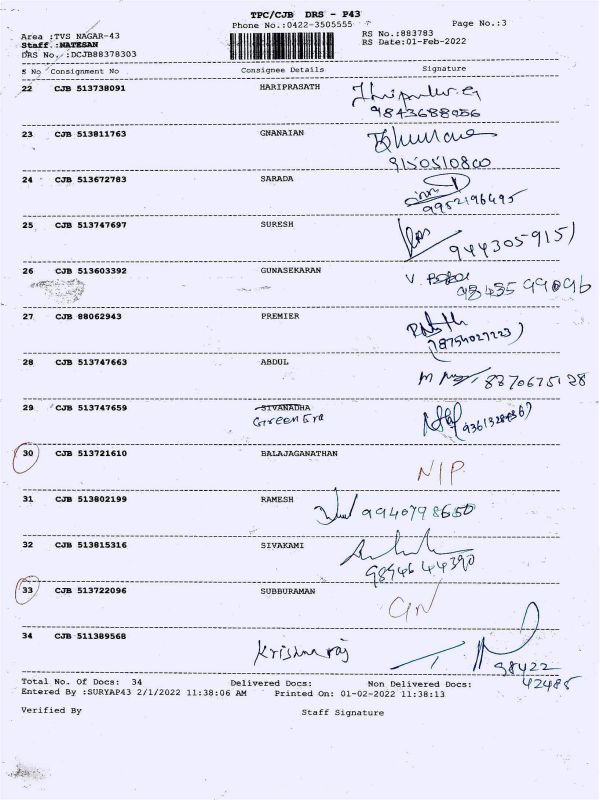 TPC/CJB DRS - P43
Phone No.:0422-3505555 Page No.:3
Area :TVS NAGAR-43 RS No.:883783
Staff :NATESAN RS Date:01-Feb-2022
DRS No. :DCJB88378303
S No Consignment No Consignee Details Signature
22 CJB 513738091 HARIPRASATH
9843688056
23 CJB 513811763 GNANAIAN
9150510800
24 CJB 513672783 SARADA
9952196495
25 CJB 513747697 SURESH
9443059151
26 CJB 513603392 GUNASEKARAN
27 CJB 88062943 PREMIER
(8754027223)
28 CJB 513747663 ABDUL
8870675128
29 CJB 513747659 SIVANADHA
Green Era
30 CJB 513721610 BALAJAGANATHAN
NIP
31 CJB 513802199 RAMESH 9940798650
32 CJB 513815316 SIVAKAMI
9894644390
33 CJB 513722096 SUBBURAMAN
34 CJB 511389568
Krishna raj
98422
42485
Total No. Of Docs: 34 Delivered Docs: Non Delivered Docs:
Entered By :SURYAP43 2/1/2022 11:38:06 AM Printed On: 01-02-2022 11:38:13
Verified By Staff Signature